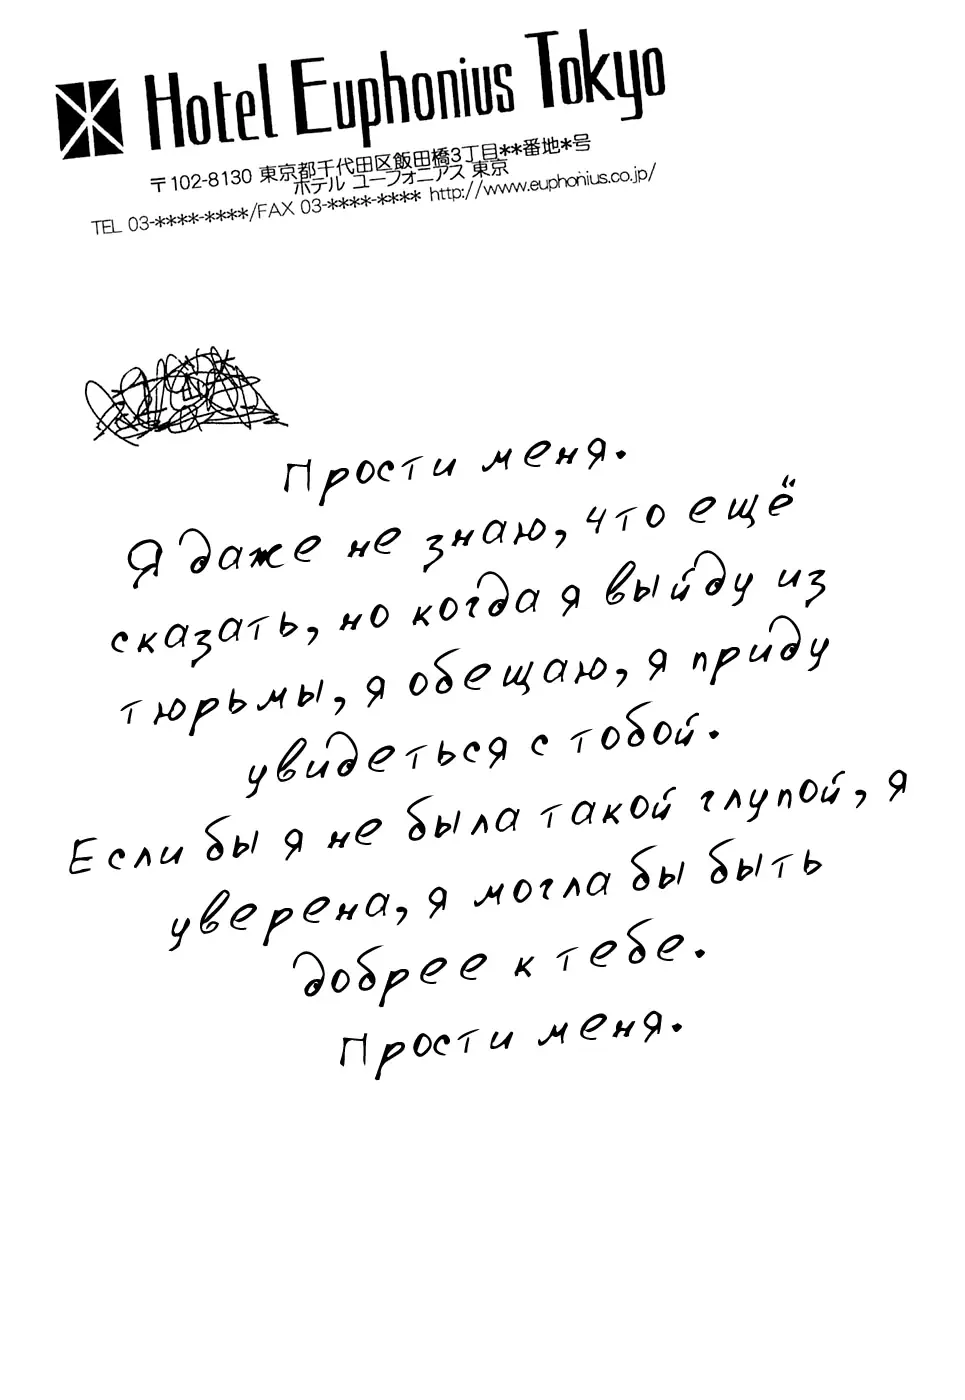 Hotel Euphonius Tokyo
〒102-8130 東京都千代田区飯田橋3丁目**番地*号
ホテル ユーフォニアス 東京
TEL 03-****-****/FAX 03-****-**** http://www.euphonius.co.jp/
Прости меня.
Я даже не знаю, что ещё
сказать, но когда я выйду из
тюрьмы, я обещаю, я приду
увидеться с тобой.
Если бы я не была такой глупой, я
уверена, я могла бы быть
добрее к тебе.
Прости меня.